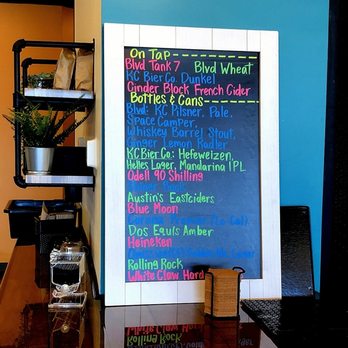 On Tap
Blvd Tank 7 Blvd Wheat
KC Bier Co. Dunkel
Cinder Block French Cider
Bottles & Cans
Blvd: KC Pilsner, Pale,
Space Camper,
Whiskey Barrel Stout,
Ginger Lemon Radler
KC Bier Co: Hefeweizen,
Helles Lager, Mandarina IPL
Odell 90 Shilling
Austin's Eastciders
Blue Moon
Dos Equis Amber
Heineken
Rolling Rock
White Claw Hard
White Claw Hard
Rolling Rock